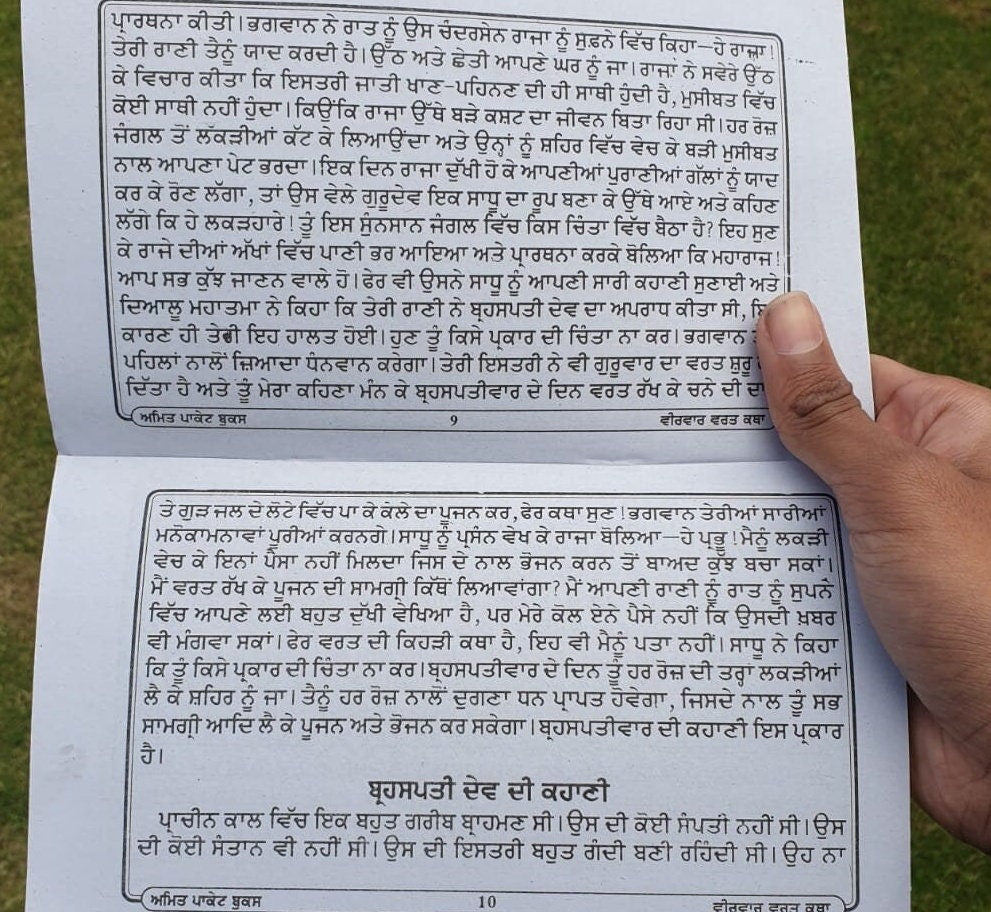 ਪ੍ਰਾਰਥਨਾ ਕੀਤੀ। ਭਗਵਾਨ ਨੇ ਰਾਤ ਨੂੰ ਉਸ ਚੰਦਰਸੇਨ ਰਾਜਾ ਨੂੰ ਸੁਫਨੇ ਵਿੱਚ ਕਿਹਾ—ਹੇ ਰਾਜਾ!
ਤੇਰੀ ਰਾਣੀ ਤੈਨੂੰ ਯਾਦ ਕਰਦੀ ਹੈ। ਉੱਠ ਅਤੇ ਛੇਤੀ ਆਪਣੇ ਘਰ ਨੂੰ ਜਾ। ਰਾਜਾ ਨੇ ਸਵੇਰੇ ਉੱਠ
ਕੇ ਵਿਚਾਰ ਕੀਤਾ ਕਿ ਇਸਤਰੀ ਜਾਤੀ ਖਾਣ-ਪਹਿਨਣ ਦੀ ਹੀ ਸਾਥੀ ਹੁੰਦੀ ਹੈ, ਮੁਸੀਬਤ ਵਿੱਚ
ਕੋਈ ਸਾਥੀ ਨਹੀਂ ਹੁੰਦਾ। ਕਿਉਂਕਿ ਰਾਜਾ ਉੱਥੇ ਬੜੇ ਕਸ਼ਟ ਦਾ ਜੀਵਨ ਬਿਤਾ ਰਿਹਾ ਸੀ। ਹਰ ਰੋਜ਼
ਜੰਗਲ ਤੋਂ ਲੱਕੜੀਆਂ ਕੱਟ ਕੇ ਲਿਆਉਂਦਾ ਅਤੇ ਉਨ੍ਹਾਂ ਨੂੰ ਸ਼ਹਿਰ ਵਿੱਚ ਵੇਚ ਕੇ ਬੜੀ ਮੁਸੀਬਤ
ਨਾਲ ਆਪਣਾ ਪੇਟ ਭਰਦਾ। ਇਕ ਦਿਨ ਰਾਜਾ ਦੁੱਖੀ ਹੋ ਕੇ ਆਪਣੀਆਂ ਪੁਰਾਣੀਆਂ ਗੱਲਾਂ ਨੂੰ ਯਾਦ
ਕਰ ਕੇ ਰੋਣ ਲੱਗਾ, ਤਾਂ ਉਸ ਵੇਲੇ ਗੁਰੂਦੇਵ ਇਕ ਸਾਧੂ ਦਾ ਰੂਪ ਬਣਾ ਕੇ ਉੱਥੇ ਆਏ ਅਤੇ ਕਹਿਣ
ਲੱਗੇ ਕਿ ਹੇ ਲਕੜਹਾਰੇ! ਤੂੰ ਇਸ ਸੁੰਨਸਾਨ ਜੰਗਲ ਵਿੱਚ ਕਿਸ ਚਿੰਤਾ ਵਿੱਚ ਬੈਠਾ ਹੈ? ਇਹ ਸੁਣ
ਕੇ ਰਾਜੇ ਦੀਆਂ ਅੱਖਾਂ ਵਿੱਚ ਪਾਣੀ ਭਰ ਆਇਆ ਅਤੇ ਪ੍ਰਾਰਥਨਾ ਕਰਕੇ ਬੋਲਿਆ ਕਿ ਮਹਾਰਾਜ!
ਆਪ ਸਭ ਕੁੱਝ ਜਾਣਨ ਵਾਲੇ ਹੋ। ਫੇਰ ਵੀ ਉਸਨੇ ਸਾਧੂ ਨੂੰ ਆਪਣੀ ਸਾਰੀ ਕਹਾਣੀ ਸੁਣਾਈ ਅਤੇ
ਦਿਆਲੂ ਮਹਾਤਮਾ ਨੇ ਕਿਹਾ ਕਿ ਤੇਰੀ ਰਾਣੀ ਨੇ ਬ੍ਰਹਸਪਤੀ ਦੇਵ ਦਾ ਅਪਰਾਧ ਕੀਤਾ ਸੀ,
ਕਾਰਣ ਹੀ ਤੇਰੀ ਇਹ ਹਾਲਤ ਹੋਈ। ਹੁਣ ਤੂੰ ਕਿਸੇ ਪ੍ਰਕਾਰ ਦੀ ਚਿੰਤਾ ਨਾ ਕਰ। ਭਗਵਾਨ
ਪਹਿਲਾਂ ਨਾਲੋਂ ਜ਼ਿਆਦਾ ਧੰਨਵਾਨ ਕਰੇਗਾ। ਤੇਰੀ ਇਸਤਰੀ ਨੇ ਵੀ ਗੁਰੂਵਾਰ ਦਾ ਵਰਤ ਸ਼ੁਰੂ
ਦਿੱਤਾ ਹੈ ਅਤੇ ਤੂੰ ਮੇਰਾ ਕਹਿਣਾ ਮੰਨ ਕੇ ਬ੍ਰਹਸਪਤੀਵਾਰ ਦੇ ਦਿਨ ਵਰਤ ਰੱਖ ਕੇ ਚਨੇ ਦੀ
ਅਮਿਤ ਪਾਕੇਟ ਬੁਕਸ 9 ਵੀਰਵਾਰ ਵਰਤ ਕਥਾ
ਤੇ ਗੁੜ ਜਲ ਦੇ ਲੋਟੇ ਵਿੱਚ ਪਾ ਕੇ ਕੇਲੇ ਦਾ ਪੂਜਨ ਕਰ, ਫੇਰ ਕਥਾ ਸੁਣ। ਭਗਵਾਨ ਤੇਰੀਆਂ ਸਾਰੀਆਂ
ਮਨੋਕਾਮਨਾਵਾਂ ਪੂਰੀਆਂ ਕਰਨਗੇ। ਸਾਧੂ ਨੂੰ ਪ੍ਰਸੰਨ ਵੇਖ ਕੇ ਰਾਜਾ ਬੋਲਿਆ—ਹੇ ਪ੍ਰਭੂ! ਮੈਨੂੰ ਲਕੜੀ
ਵੇਚ ਕੇ ਇਨਾਂ ਪੈਸਾ ਨਹੀਂ ਮਿਲਦਾ ਜਿਸ ਦੇ ਨਾਲ ਭੋਜਨ ਕਰਨ ਤੋਂ ਬਾਅਦ ਕੁੱਝ ਬਚਾ ਸਕਾਂ।
ਮੈਂ ਵਰਤ ਰੱਖ ਕੇ ਪੂਜਨ ਦੀ ਸਾਮਗ੍ਰੀ ਕਿੱਥੋਂ ਲਿਆਵਾਂਗਾ? ਮੈਂ ਆਪਣੀ ਰਾਣੀ ਨੂੰ ਰਾਤ ਨੂੰ ਸੁਪਨੇ
ਵਿੱਚ ਆਪਣੇ ਲਈ ਬਹੁਤ ਦੁੱਖੀ ਵੇਖਿਆ ਹੈ, ਪਰ ਮੇਰੇ ਕੋਲ ਏਨੇ ਪੈਸੇ ਨਹੀਂ ਕਿ ਉਸਦੀ ਖ਼ਬਰ
ਵੀ ਮੰਗਵਾ ਸਕਾਂ। ਫੇਰ ਵਰਤ ਦੀ ਕਿਹੜੀ ਕਥਾ ਹੈ, ਇਹ ਵੀ ਮੈਨੂੰ ਪਤਾ ਨਹੀਂ। ਸਾਧੂ ਨੇ ਕਿਹਾ
ਕਿ ਤੂੰ ਕਿਸੇ ਪ੍ਰਕਾਰ ਦੀ ਚਿੰਤਾ ਨਾ ਕਰ। ਬ੍ਰਹਸਪਤੀਵਾਰ ਦੇ ਦਿਨ ਤੂੰ ਹਰ ਰੋਜ਼ ਦੀ ਤਰ੍ਹਾਂ ਲਕੜੀਆਂ
ਲੈ ਕੇ ਸ਼ਹਿਰ ਨੂੰ ਜਾ। ਤੈਨੂੰ ਹਰ ਰੋਜ਼ ਨਾਲੋਂ ਦੁਗਣਾ ਧਨ ਪ੍ਰਾਪਤ ਹੋਵੇਗਾ, ਜਿਸਦੇ ਨਾਲ ਤੂੰ ਸਭ
ਸਾਮਗ੍ਰੀ ਆਦਿ ਲੈ ਕੇ ਪੂਜਨ ਅਤੇ ਭੋਜਨ ਕਰ ਸਕੇਗਾ। ਬ੍ਰਹਸਪਤੀਵਾਰ ਦੀ ਕਹਾਣੀ ਇਸ ਪ੍ਰਕਾਰ
ਹੈ।
ਬ੍ਰਹਸਪਤੀ ਦੇਵ ਦੀ ਕਹਾਣੀ
ਪ੍ਰਾਚੀਨ ਕਾਲ ਵਿੱਚ ਇਕ ਬਹੁਤ ਗਰੀਬ ਬ੍ਰਾਹਮਣ ਸੀ। ਉਸ ਦੀ ਕੋਈ ਸੰਪਤੀ ਨਹੀਂ ਸੀ। ਉਸ
ਦੀ ਕੋਈ ਸੰਤਾਨ ਵੀ ਨਹੀਂ ਸੀ। ਉਸ ਦੀ ਇਸਤਰੀ ਬਹੁਤ ਗੰਦੀ ਬਣੀ ਰਹਿੰਦੀ ਸੀ। ਉਹ ਨਾ
ਅਮਿਤ ਪਾਕੇਟ ਬੁਕਸ 10 ਵੀਰਵਾਰ ਵਰਤ ਕਥਾ